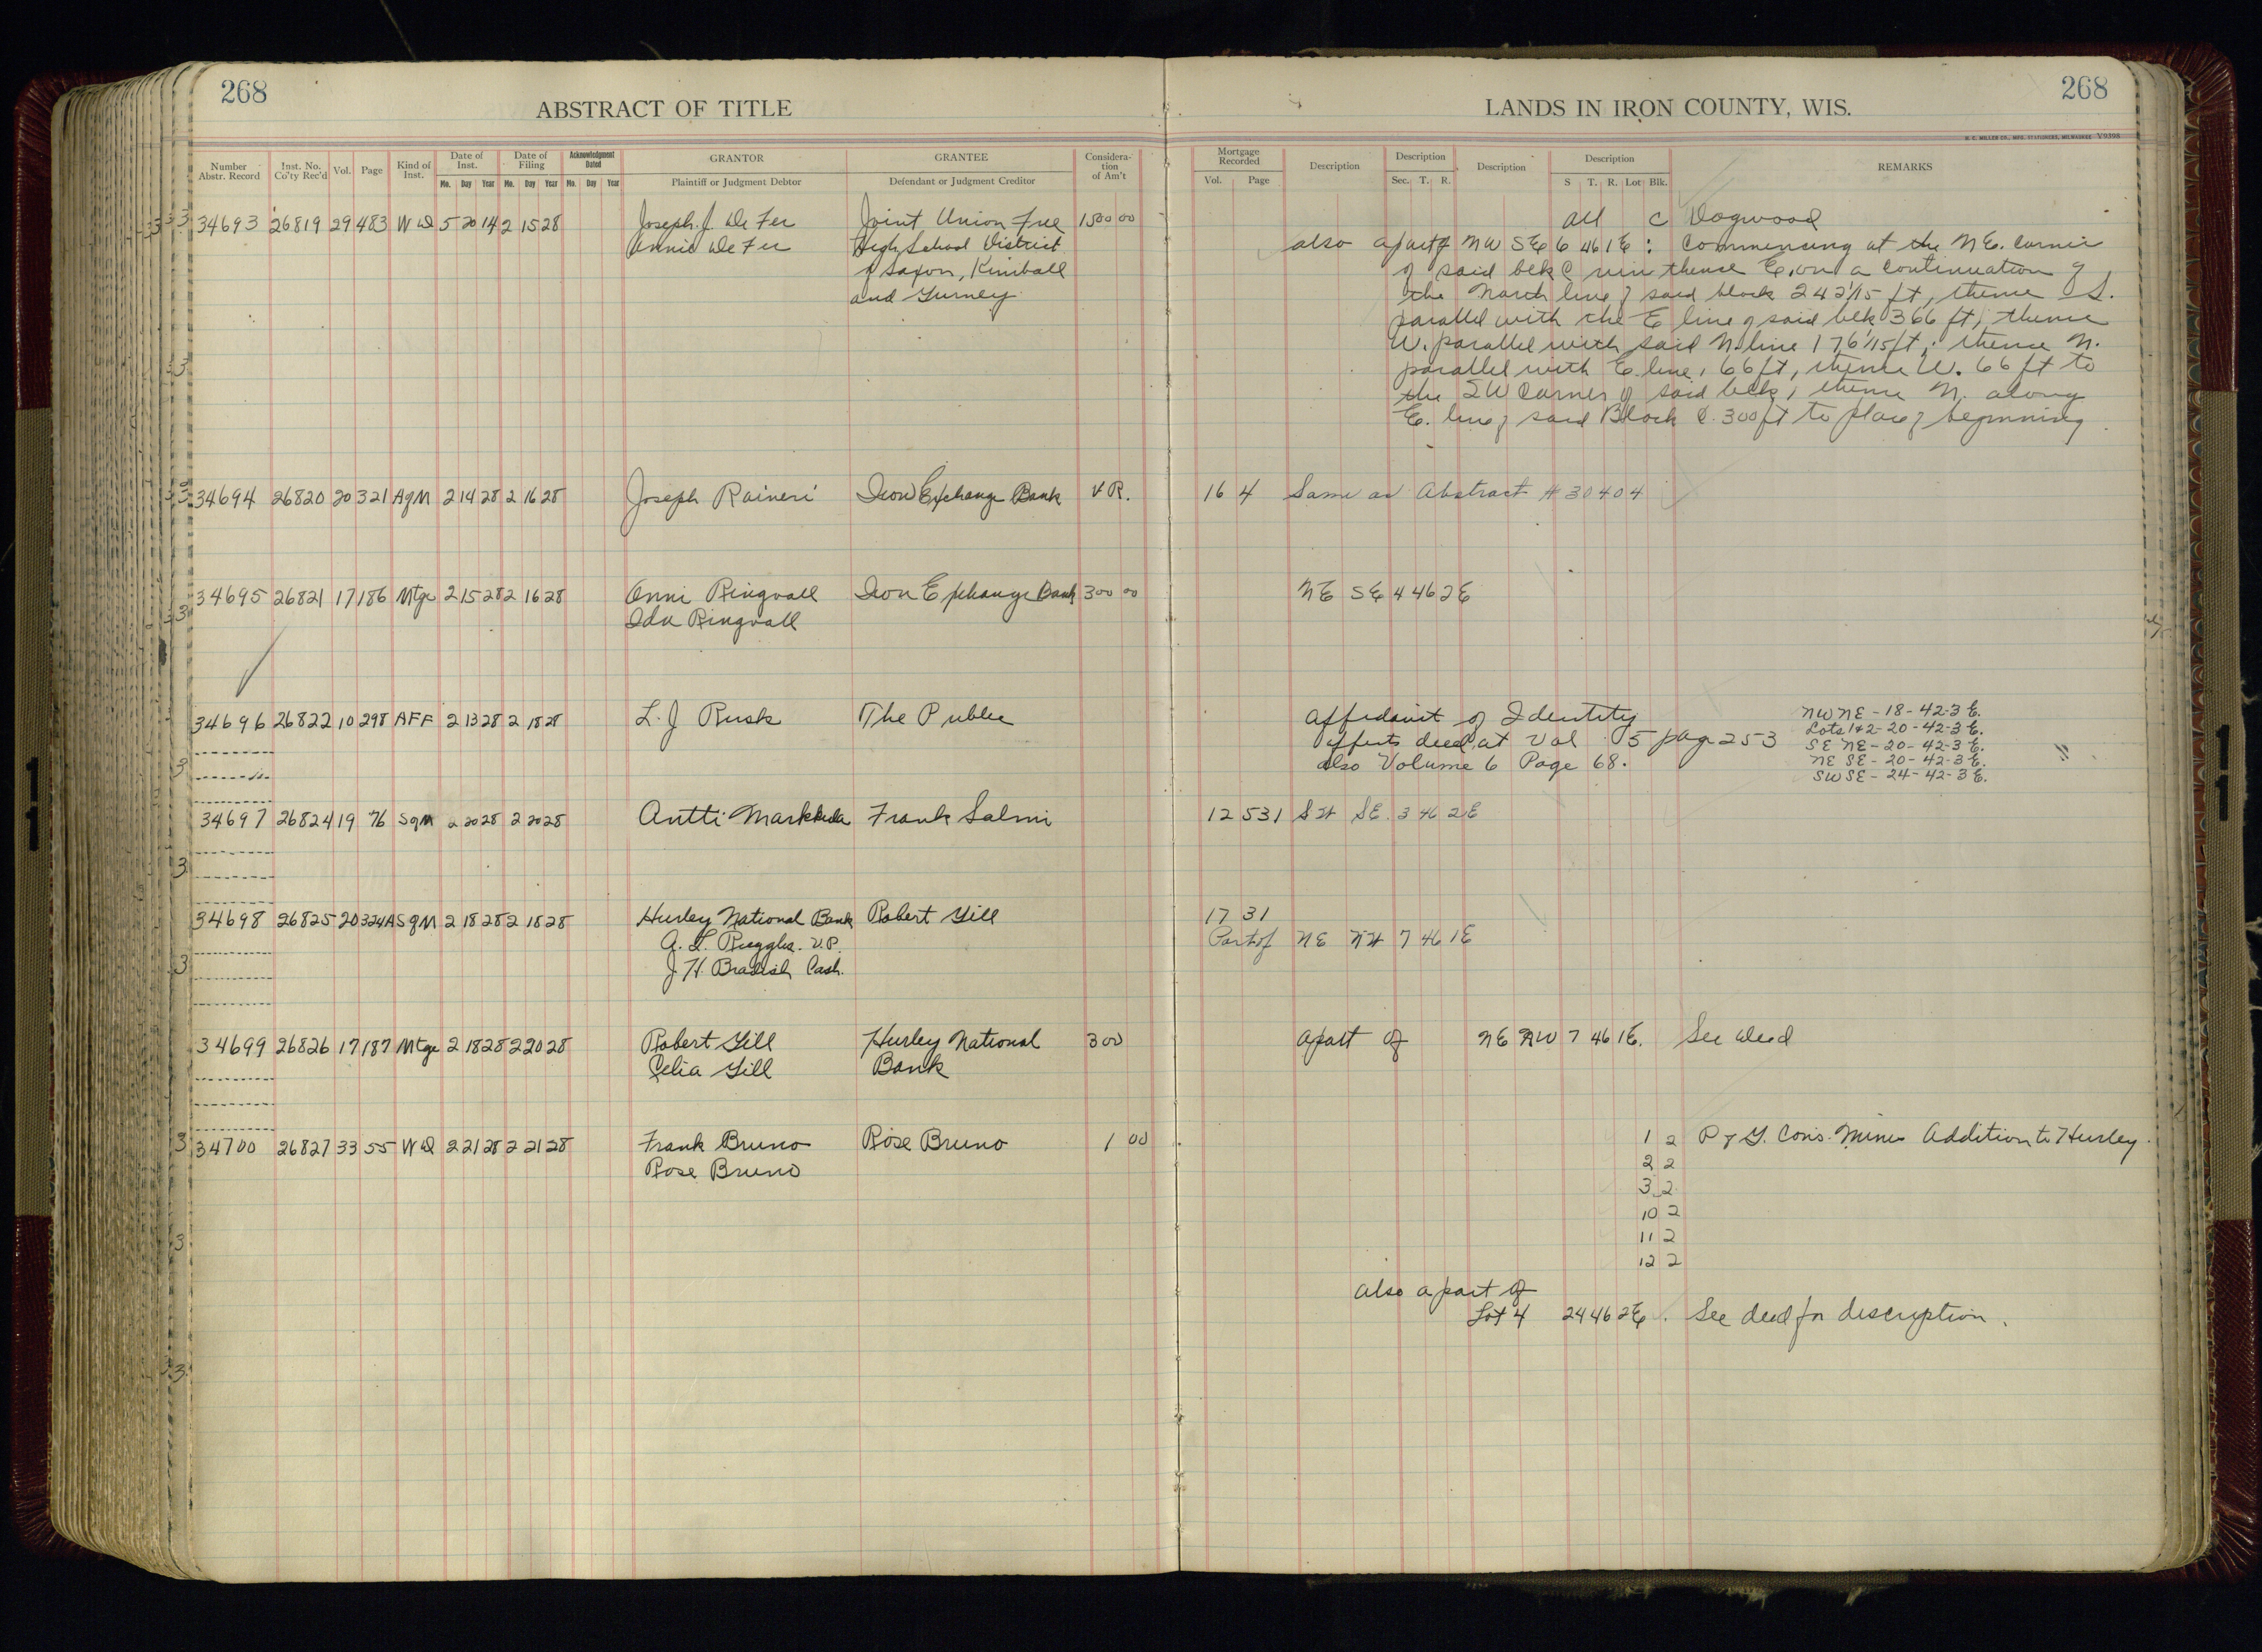 268
ABSTRACT OF TITLE
LANDS IN IRON COUNTY, WIS.
268
H. C. MILLER CO., MFG. STATIONERS, MILWAUKEE Y9398
Number Abstr. Record
Inst. No. Co'ty Rec'd
Vol.
Page
Kind of Inst.
Date of Inst.
Mo. Day Year
Date of Filing
Mo. Day Year
Acknowledgment Dated
Mo. Day Year
GRANTOR
Plaintiff or Judgment Debtor
GRANTEE
Defendant or Judgment Creditor
Considera- tion of Am't
Mortgage Recorded
Vol. Page
Description
Description
Sec. T. R.
Description
Description
S T. R. Lot Blk.
REMARKS
34693 26819 29 483 W D 5 20 14 2 15 28 Joseph J. De Fer Joint Union Free 1500 00 All C Dogwood
Annie De Fer High School District also a part of NW SE 6 46 1E : Commencing at the N E. corner
of Saxon, Kimball of said blk C run thence E. on a continuation of
and Gurney the North line of said block 242 1/15 ft, thence S.
parallel with the E line of said blk 366 ft, thence
W. parallel with said N. line 176 1/15 ft, thence N.
parallel with E. line, 66 ft, thence W. 66 ft to
the SW Corner of said blk, thence N. along
E. line of said Block C. 300 ft to place of beginning
34694 26820 20 321 AgM 2 14 28 2 16 28 Joseph Raineri Iron Exchange Bank V R. 16 4 Same as Abstract # 30404
34695 26821 17 186 Mtge 2 15 28 2 16 28 Anni Ringvall Iron Exchange Bank 300 00 NE SE 4 46 2E
Ida Ringvall
34696 26822 10 298 AFF 2 13 28 2 18 28 L. J Rusk The Public Affidavit of Identity NW NE - 18 - 42-3 E.
affects deed at Vol 5 page 253 Lots 1&2 - 20 - 42-3 E.
also Volume 6 Page 68. SE NE - 20 - 42-3 E.
NE SE - 20 - 42-3 E.
SW SE - 24 - 42-3 E.
34697 26824 19 76 SgM 2 20 28 2 20 28 Antti Frank Salmi 12 531 SW SE. 3 46 2E
34698 26825 20 324 ASgM 2 18 28 2 18 28 Hurley National Bank Robert Gill 17 31
A. L. Ruggles. V.P. Part of NE NW 7 46 1E
J H. Bradish Cash.
34699 26826 17 187 Mtge 2 18 28 2 20 28 Robert Gill Hurley National 300 a part of NE NW 7 46 1E. See deed
Celia Gill Bank
34700 26827 33 55 W D 2 21 28 2 21 28 Frank Bruno Rose Bruno 1 00 1 2 P & G. Cons. Mines Addition to Hurley.
Rose Bruno 2 2
3 2
10 2
11 2
12 2
also a part of
Lot 4 24 46 2E. See deed for description.